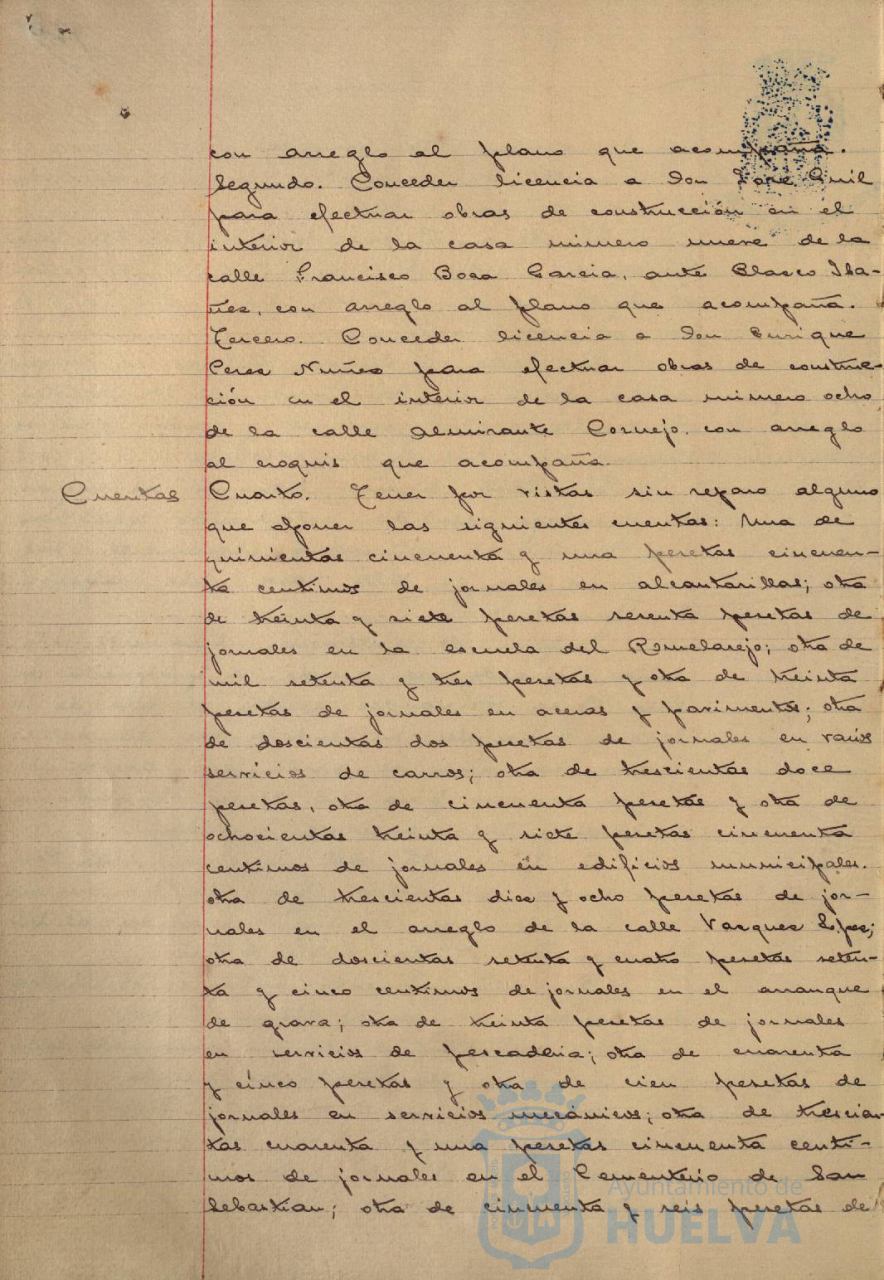 con arreglo al plano que acompaña.
Segundo. Conceder licencia a Don José Gril
para efectuar obras de construcción en el
interior de la casa número nueve de la
calle Francisco Boza Garcia, ante Blasco Iba-
ñez, con arreglo al plano que acompaña.
Tercero. Conceder licencia a Don Enrique
Perez Nuñez para efectuar obras de construc-
ción en el interior de la casa número ocho
de la calle Almirante Cornejo, con arreglo
al croquis que acompaña.
Cuentas
Cuarto. Tener por vistas sin reparo alguno
que oponer las siguientes cuentas: Una de
quinientas cincuenta y una pesetas cincuen-
ta centimos de jornales en alcantarillas; otra
de treinta y siete pesetas sesenta pesetas de
jornales en la escuela del Romeralejo; otra de
mil setenta y tres pesetas y otra de treinta
pesetas de jornales en aceras y pavimentos; otra
de doscientas dos pesetas de jornales en varios
servicios de carros; otra de trescientas doce
pesetas, otra de cincuenta pesetas y otra de
ochocientas treinta y siete pesetas cincuenta
centimos de jornales en edificios municipales.
otra de trescientas diez y ocho pesetas de jor-
nales en el arreglo de la calle Vazquez Lopez;
otra de doscientas setenta y cuatro pesetas seten-
ta y cinco centimos de jornales en el arranque
de grava; otra de treinta pesetas de jornales
en servicios de pescaderia; otra de cuarenta
y cinco pesetas y otra de cien pesetas de
jornales en servicios mecánicos; otra de trescien-
tas cuarenta y una pesetas cincuenta centi-
mos de jornales en el Cementerio de San
Sebastian; otra de cincuenta y seis pesetas de
Ayuntamiento de
HUELVA